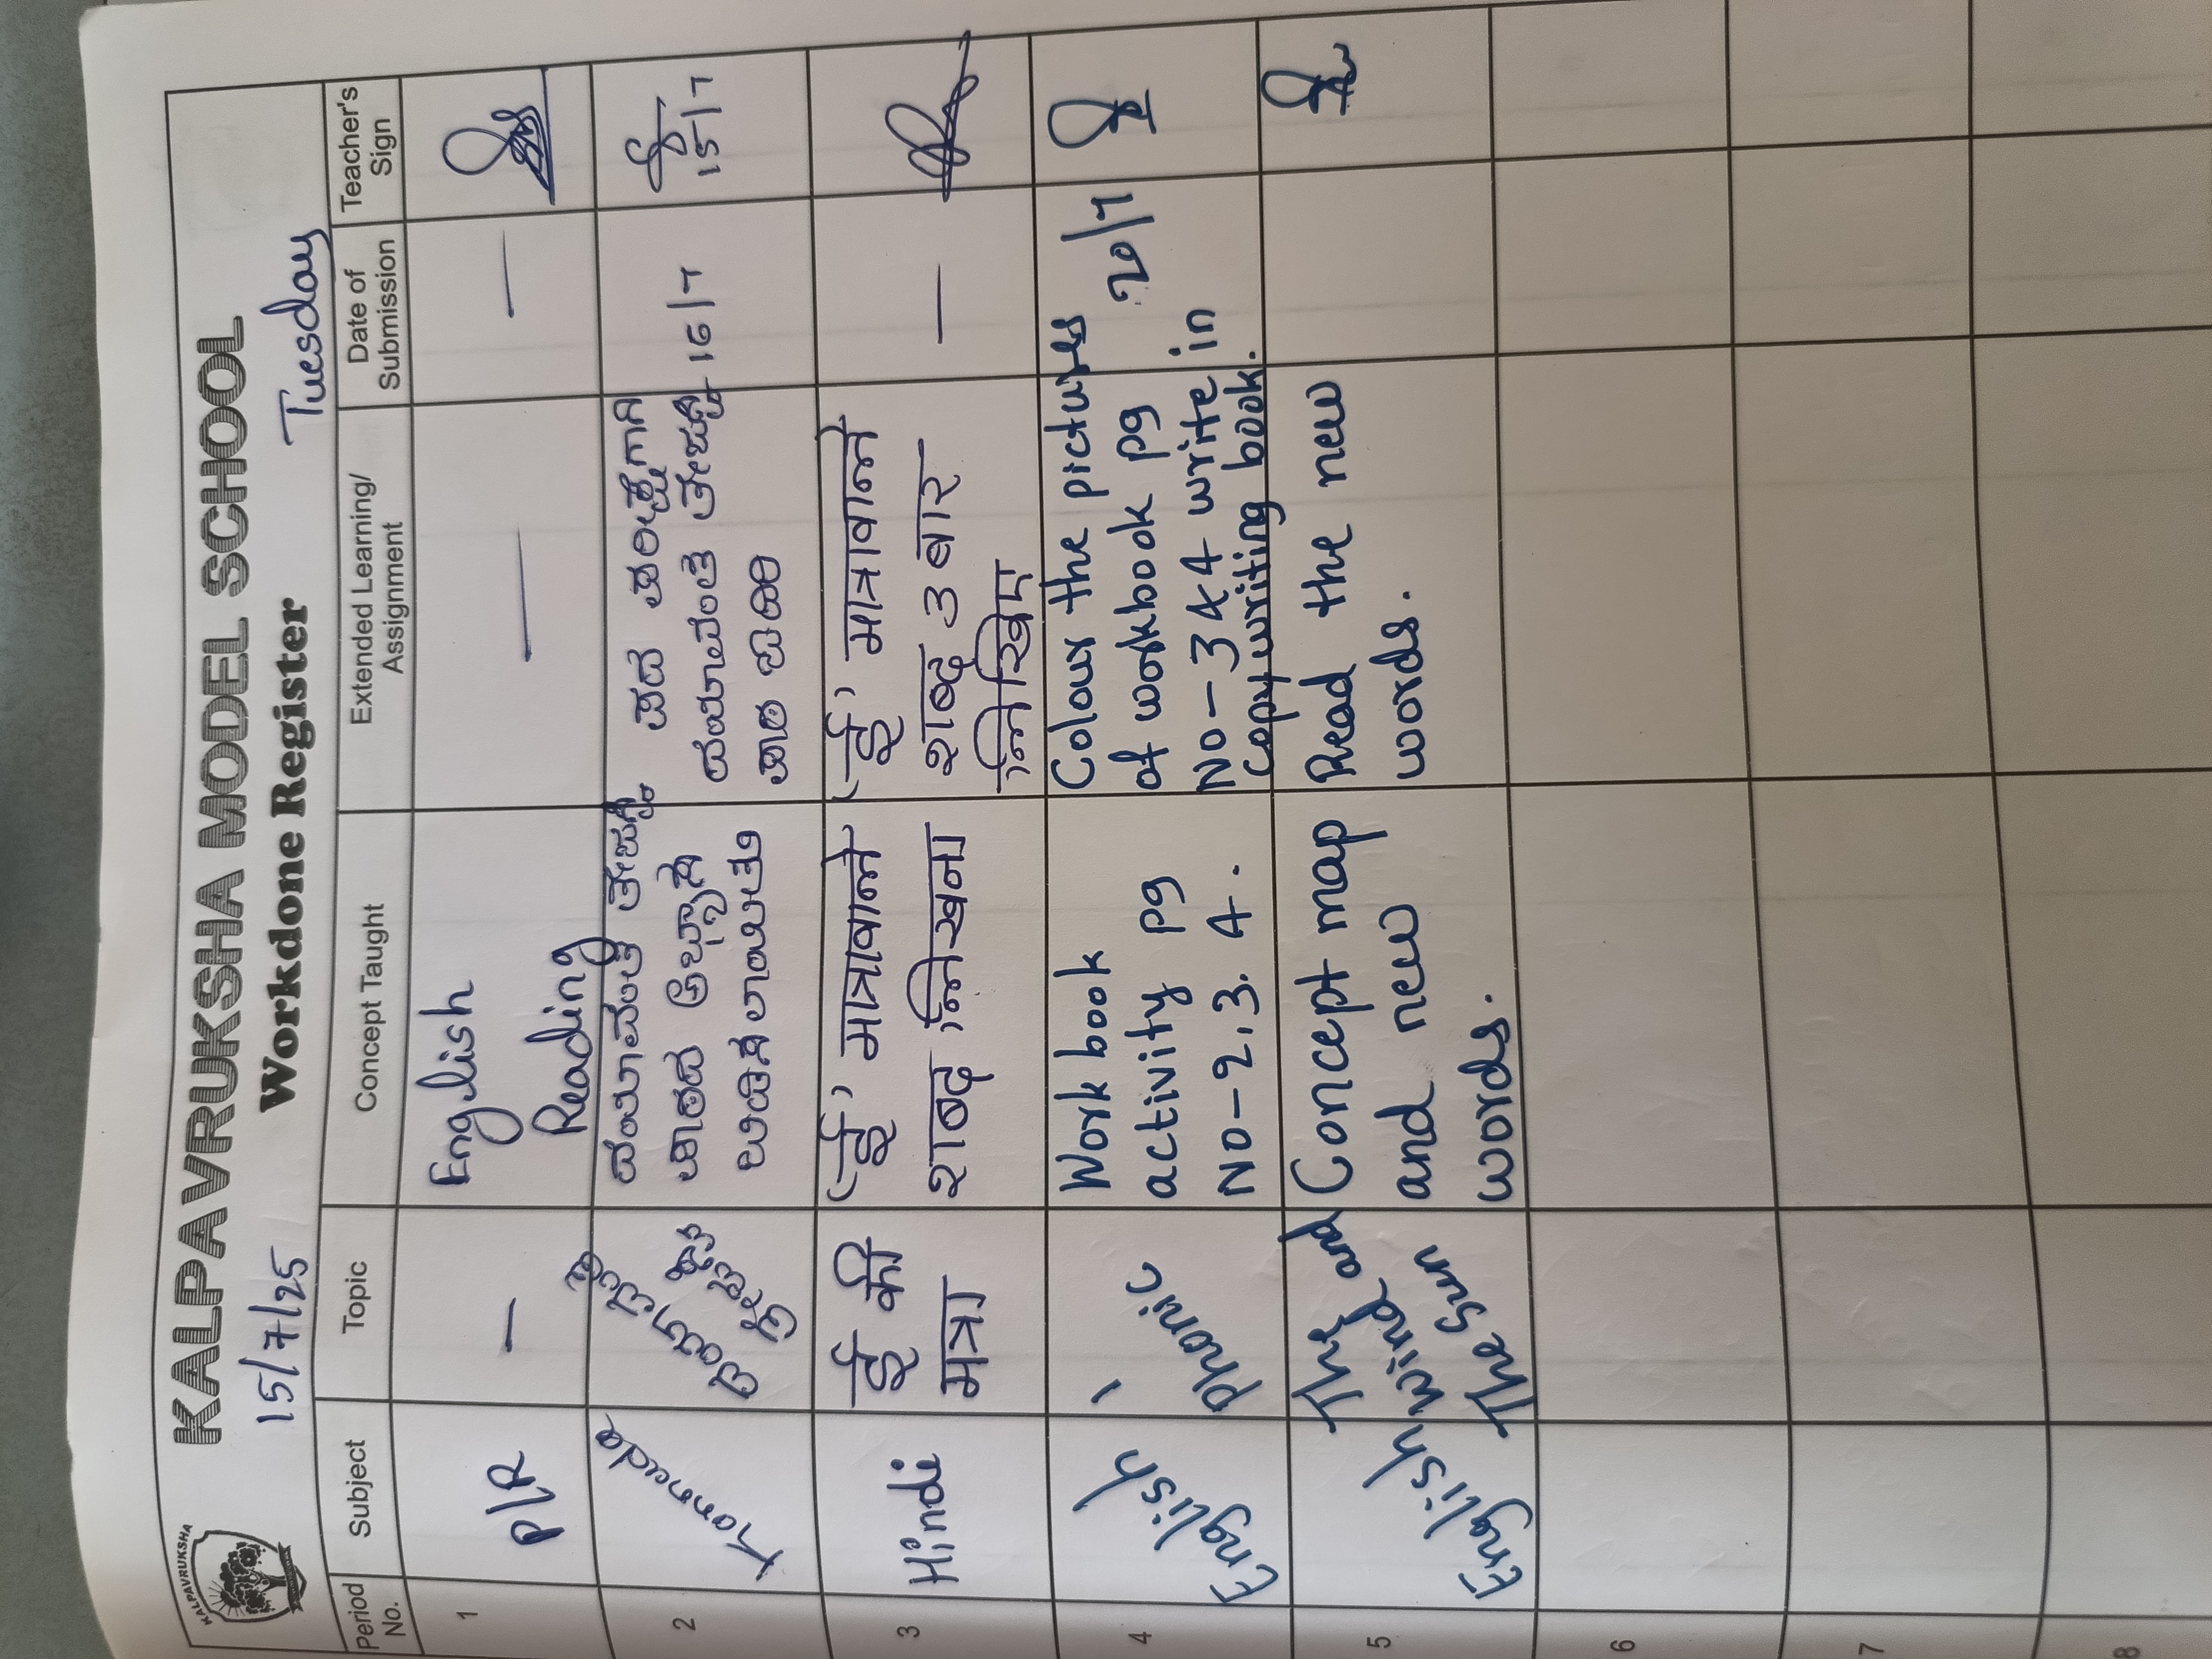 KALPAVRUKSHA
KALPAVRUKSHA MODEL SCHOOL
15/7/25 Workdone Register Tuesday
Period No. Subject Topic Concept Taught Extended Learning/ Assignment Date of Submission Teacher's Sign
1 P/R — English Reading — —
2 Kannada
ಅಭ್ಯಾಸ
ಪದ
16/7
15/7
3 Hindi
ई की
मात्रा
('ई' मात्रावाले
शब्द लिखना
('ई' मात्रावाले
शब्द 3 बार
लिखिए
—
4 English
Phonic
Work book
activity pg
No-2.3.4.
Colour the pictures
of workbook pg
No-3&4 write in
Copy writing book.
20/7
5 English
The
wind and
The Sun
Concept map
and new
words.
Read the new
words.
6
7
8